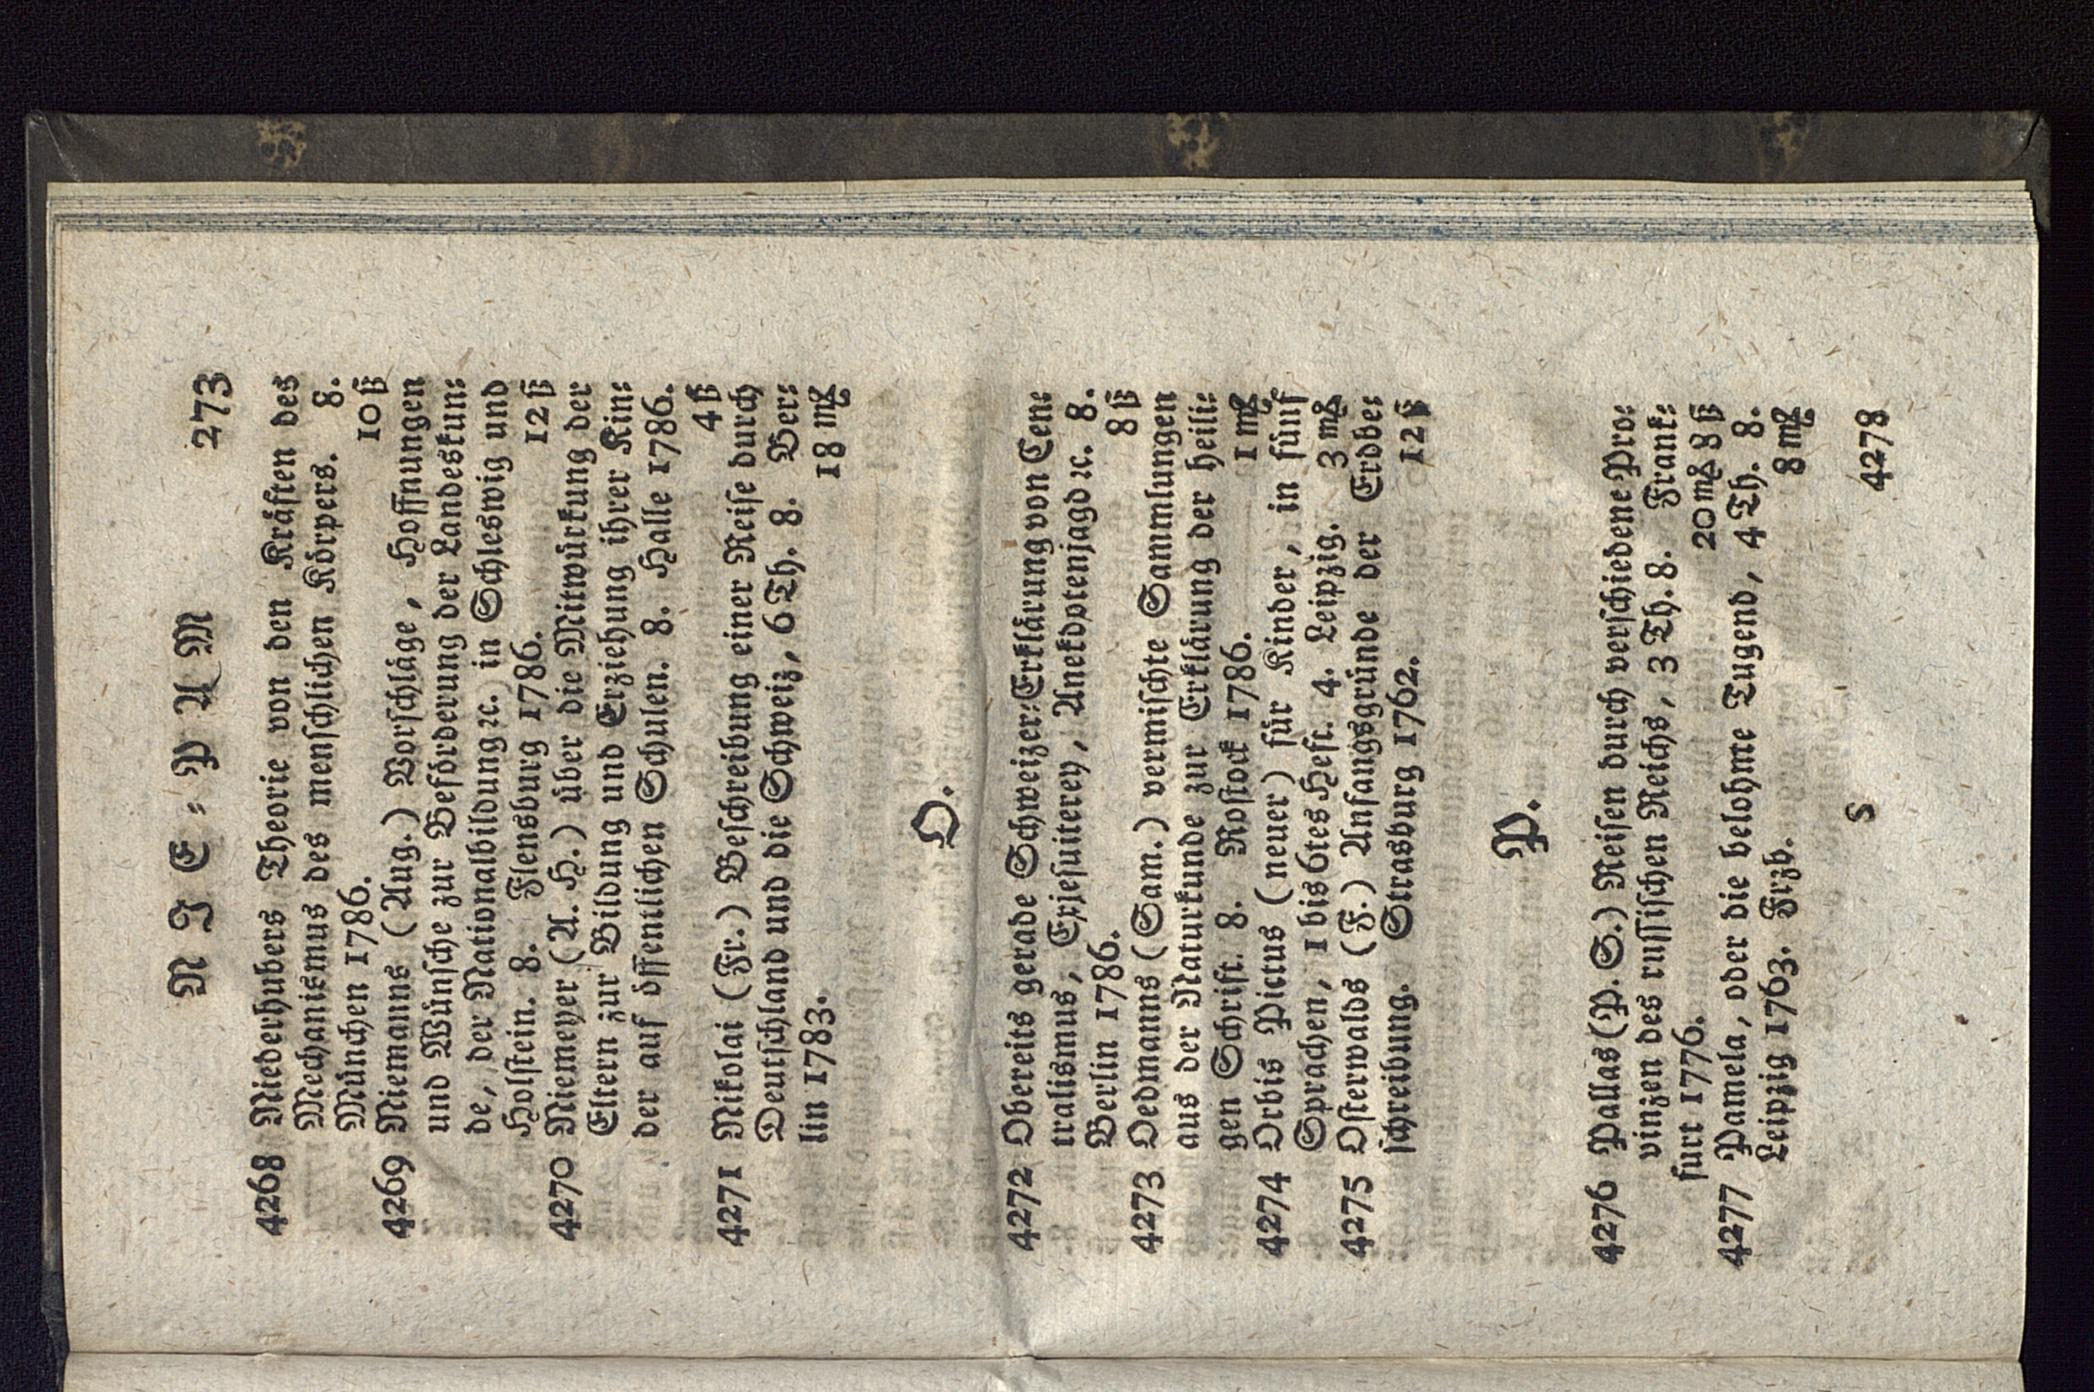 N I E = P A M 273
4268 Niederhubers Theorie von den Kräften des
Mechanismus des menschlichen Körpers. 8.
München 1786. 10 ß
4269 Niemanns (Aug.) Vorschläge, Hoffnungen
und Wünsche zur Beförderung der Landeskun=
de, der Nationalbildung ꝛc. in Schleswig und
Holstein. 8. Flensburg 1786. 12 ß
4270 Niemeyer (A. H.) über die Mitwürkung der
Eltern zur Bildung und Erziehung ihrer Kin=
der auf öffentlichen Schulen. 8. Halle 1786.
4 ß
4271 Nikolai (Fr.) Beschreibung einer Reise durch
Deutschland und die Schweiz, 6 Th. 8. Ber=
lin 1783. 18 mꝭ
O.
4272 Obereits gerade Schweizer=Erklärung von Cen=
tralismus, Exjesuiterey, Anekdotenjagd ꝛc. 8.
Berlin 1786. 8 ß
4273 Oedmanns (Sam.) vermischte Sammlungen
aus der Naturkunde zur Erklärung der heili=
gen Schrift. 8. Rostock 1786. 1 mꝭ
4274 Orbis Pictus (neuer) für Kinder, in fünf
Sprachen, 1 bis 6tes Heft. 4. Leipzig. 3 mꝭ
4275 Osterwalds (F.) Anfangsgründe der Erdbe=
schreibung. Strasburg 1762. 12 ß
P.
4276 Pallas (P. S.) Reisen durch verschiedene Pro=
vinzen des russischen Reichs, 3 Th. 8. Frank=
furt 1776. 20 mꝭ 8 ß
4277 Pamela, oder die belohnte Tugend, 4 Th. 8.
Leipzig 1763. Frzb. 8 mꝭ
S 4278